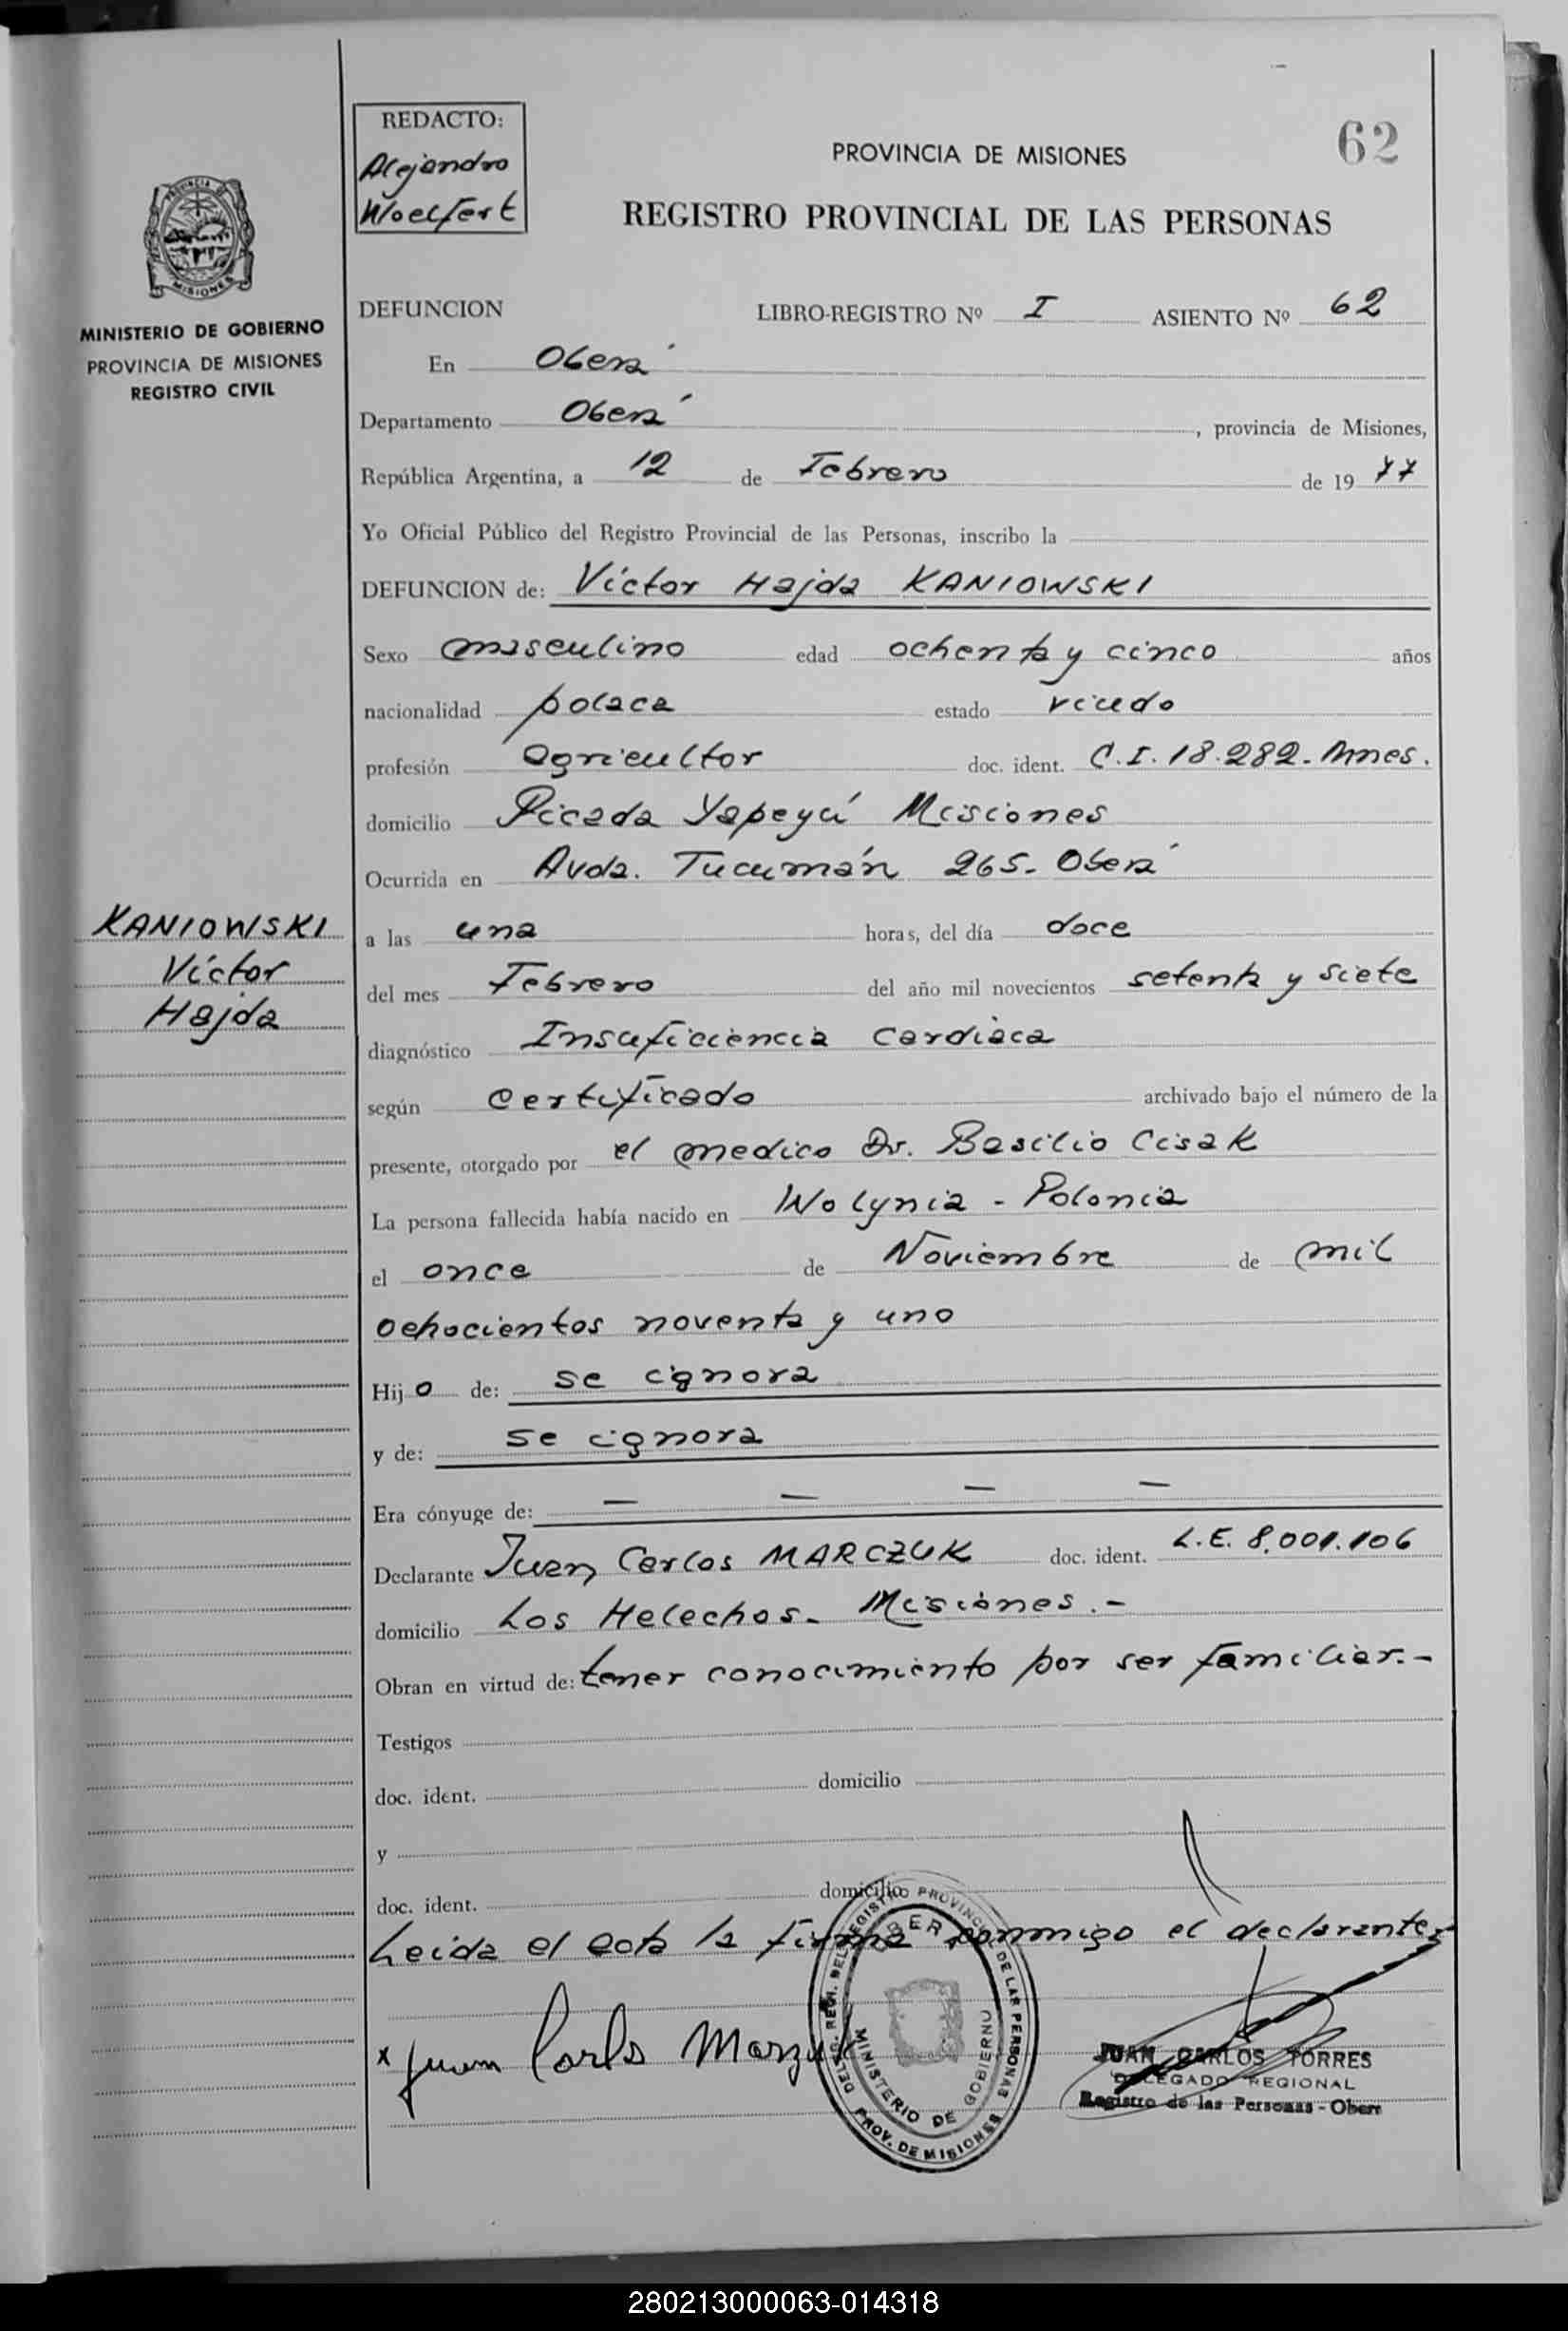 REDACTO:
Alejandro
Woelfert
62
PROVINCIA DE MISIONES
REGISTRO PROVINCIAL DE LAS PERSONAS
MISIONES
MINISTERIO DE GOBIERNO
PROVINCIA DE MISIONES
REGISTRO CIVIL
DEFUNCION LIBRO-REGISTRO Nº I ASIENTO Nº 62
En Oberá
Departamento Oberá, provincia de Misiones,
República Argentina, a 12 de Febrero de 1977
Yo Oficial Público del Registro Provincial de las Personas, inscribo la
DEFUNCION de: Víctor Hajda KANIOWSKI
Sexo masculino edad ochenta y cinco años
nacionalidad polaca estado viudo
profesión agricultor doc. ident. C.I. 18.282. Mnes.
domicilio Picada Yapeyú Misiones
Ocurrida en Avda. Tucumán 265. Oberá
KANIOWSKI
Víctor
Hajda
a las una horas, del día doce
del mes Febrero del año mil novecientos setenta y siete
diagnóstico Insuficiencia Cardiaca
según certificado archivado bajo el número de la
presente, otorgado por el medico Dr. Basilio Cisak
La persona fallecida había nacido en Wolynia - Polonia
el once de Noviembre de mil
ochocientos noventa y uno
Hijo de: se ignora
y de: se ignora
Era cónyuge de: — — — —
Declarante Juan Carlos MARCZUK doc. ident. L.E. 8.001.106
domicilio Los Helechos. Misiones.-
Obran en virtud de: tener conocimiento por ser familiar.-
Testigos
doc. ident. domicilio
y
doc. ident. domicilio
Leida el acta la firma conmigo el declarante
x Juan Carlos Marzuk
DELEG. REGN. DEL REGISTRO PROVINCIAL DE LAS PERSONAS
MINISTERIO DE GOBIERNO
PROV. DE MISIONES
JUAN CARLOS TORRES
DELEGADO REGIONAL
Registro de las Personas - Oberá
280213000063-014318